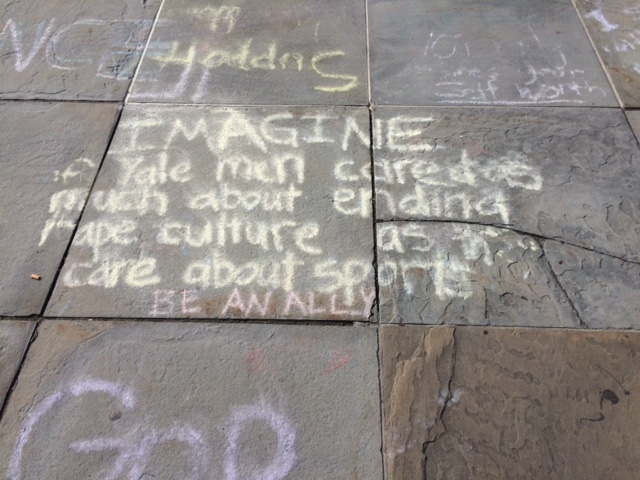 Support
Self worth
IMAGINE
if Yale men cared as
much about ending
rape culture as they
care about sports
BE AN ALLY
GOD